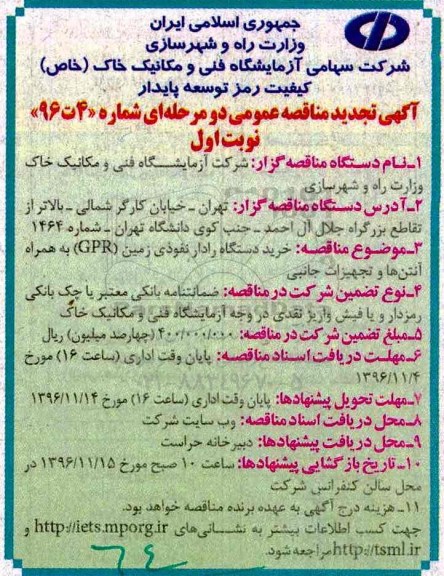 جمهوری اسلامی ایران
وزارت راه و شهرسازی
شرکت سهامی آزمایشگاه فنی و مکانیک خاک (خاص)
کیفیت رمز توسعه پایدار
آگهی تجدید مناقصه عمومی دو مرحله‌ای شماره «۴ت۹۶»
نوبت اول
۱-نام دستگاه مناقصه گزار: شرکت آزمایشگاه فنی و مکانیک خاک
وزارت راه و شهرسازی
۲-آدرس دستگاه مناقصه گزار: تهران ـ خیابان کارگر شمالی ـ بالاتر از
تقاطع بزرگراه جلال آل احمد ـ جنب کوی دانشگاه تهران ـ شماره ۱۴۶۴
۳-موضوع مناقصه: خرید دستگاه رادار نفوذی زمین (GPR) به همراه
آنتن‌ها و تجهیزات جانبی
۴-نوع تضمین شرکت در مناقصه: ضمانتنامه بانکی معتبر یا چک بانکی
رمزدار و یا فیش واریز نقدی در وجه آزمایشگاه فنی و مکانیک خاک
۵-مبلغ تضمین شرکت در مناقصه: ۴۰۰/۰۰۰/۰۰۰ (چهارصد میلیون) ریال
۶-مهلت دریافت اسناد مناقصه: پایان وقت اداری (ساعت ۱۶) مورخ
۱۳۹۶/۱۱/۴
۷-مهلت تحویل پیشنهادها: پایان وقت اداری (ساعت ۱۶) مورخ ۱۳۹۶/۱۱/۱۴
۸-محل دریافت اسناد مناقصه: وب سایت شرکت
۹-محل دریافت پیشنهادها: دبیرخانه حراست
۱۰-تاریخ بازگشایی پیشنهادها: ساعت ۱۰ صبح مورخ ۱۳۹۶/۱۱/۱۵ در
محل سالن کنفرانس شرکت
۱۱-هزینه درج آگهی به عهده برنده مناقصه خواهد بود.
جهت کسب اطلاعات بیشتر به نشانی‌های http://iets.mporg.ir و
http://tsml.ir مراجعه شود.